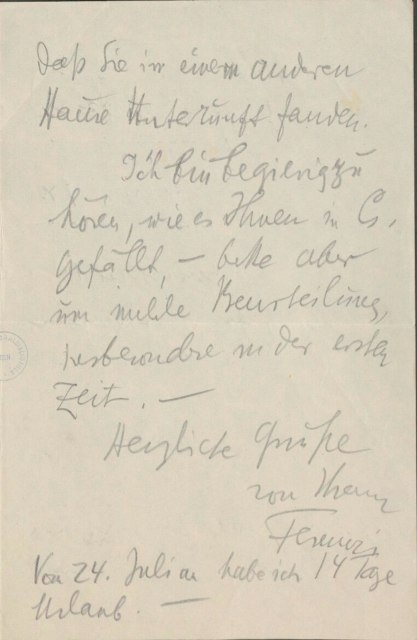 daß Sie in einem anderen
Hause Unterkunft fanden.
Ich bin begierig zu
hören, wie es Ihnen in Cs.
gefällt, – bitte aber
um milde Beurteilung,
insbesondere in der ersten
Zeit. —
Herzliche Grüße
von Ihrem
Ferenczi
Von 24. Juli an habe ich 14 Tage
Urlaub. —